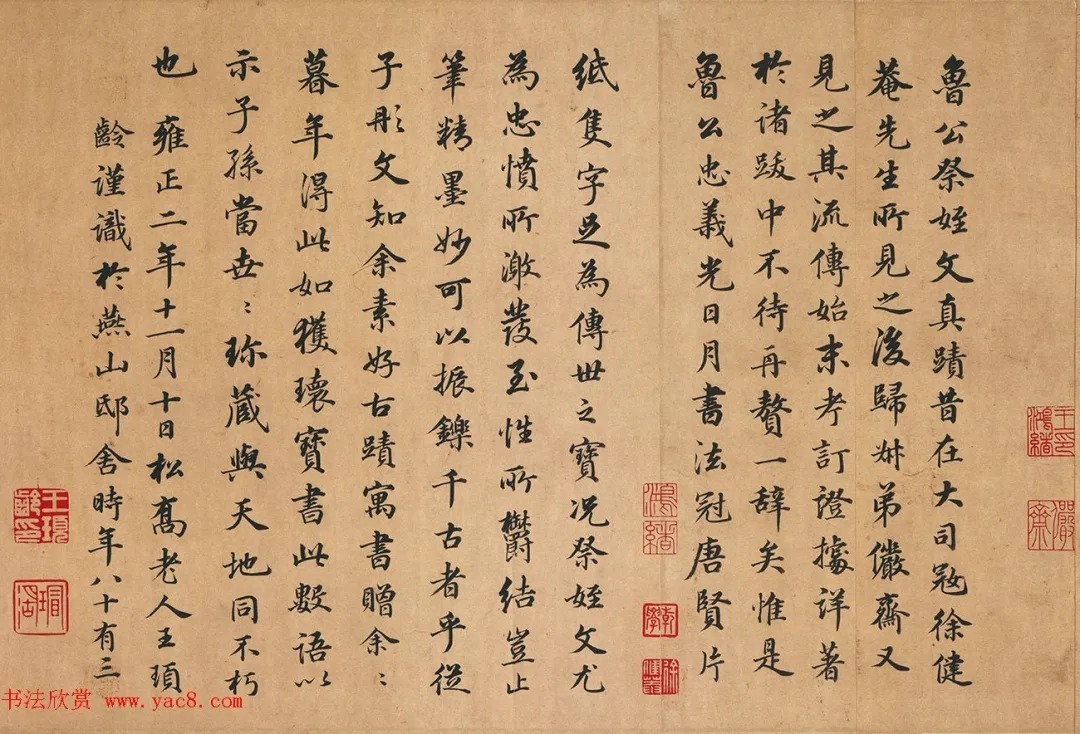 魯公祭姪文真蹟昔在大司寇徐健
菴先生所見之後歸叔弟儼齋又
見之其流傳始末考訂證據詳著
於諸跋中不待再贅一辭矣惟是
魯公忠義光日月書法冠唐賢片
紙隻字足為傳世之寶況祭姪文尤
為忠憤所激發至性所鬱結豈止
筆精墨妙可以振鑠千古者乎從
子彤文知余素好古蹟寓書贈余〻
暮年得此如獲瓌寶書此數語以
示子孫當世〻珍藏與天地同不朽
也雍正二年十一月十日松喬老人王頊
齡謹識於燕山邸舍時年八十有三
王頊齡印
王鴻緒印
儼齋
鴻緒
书法欣赏 www.yac8.com